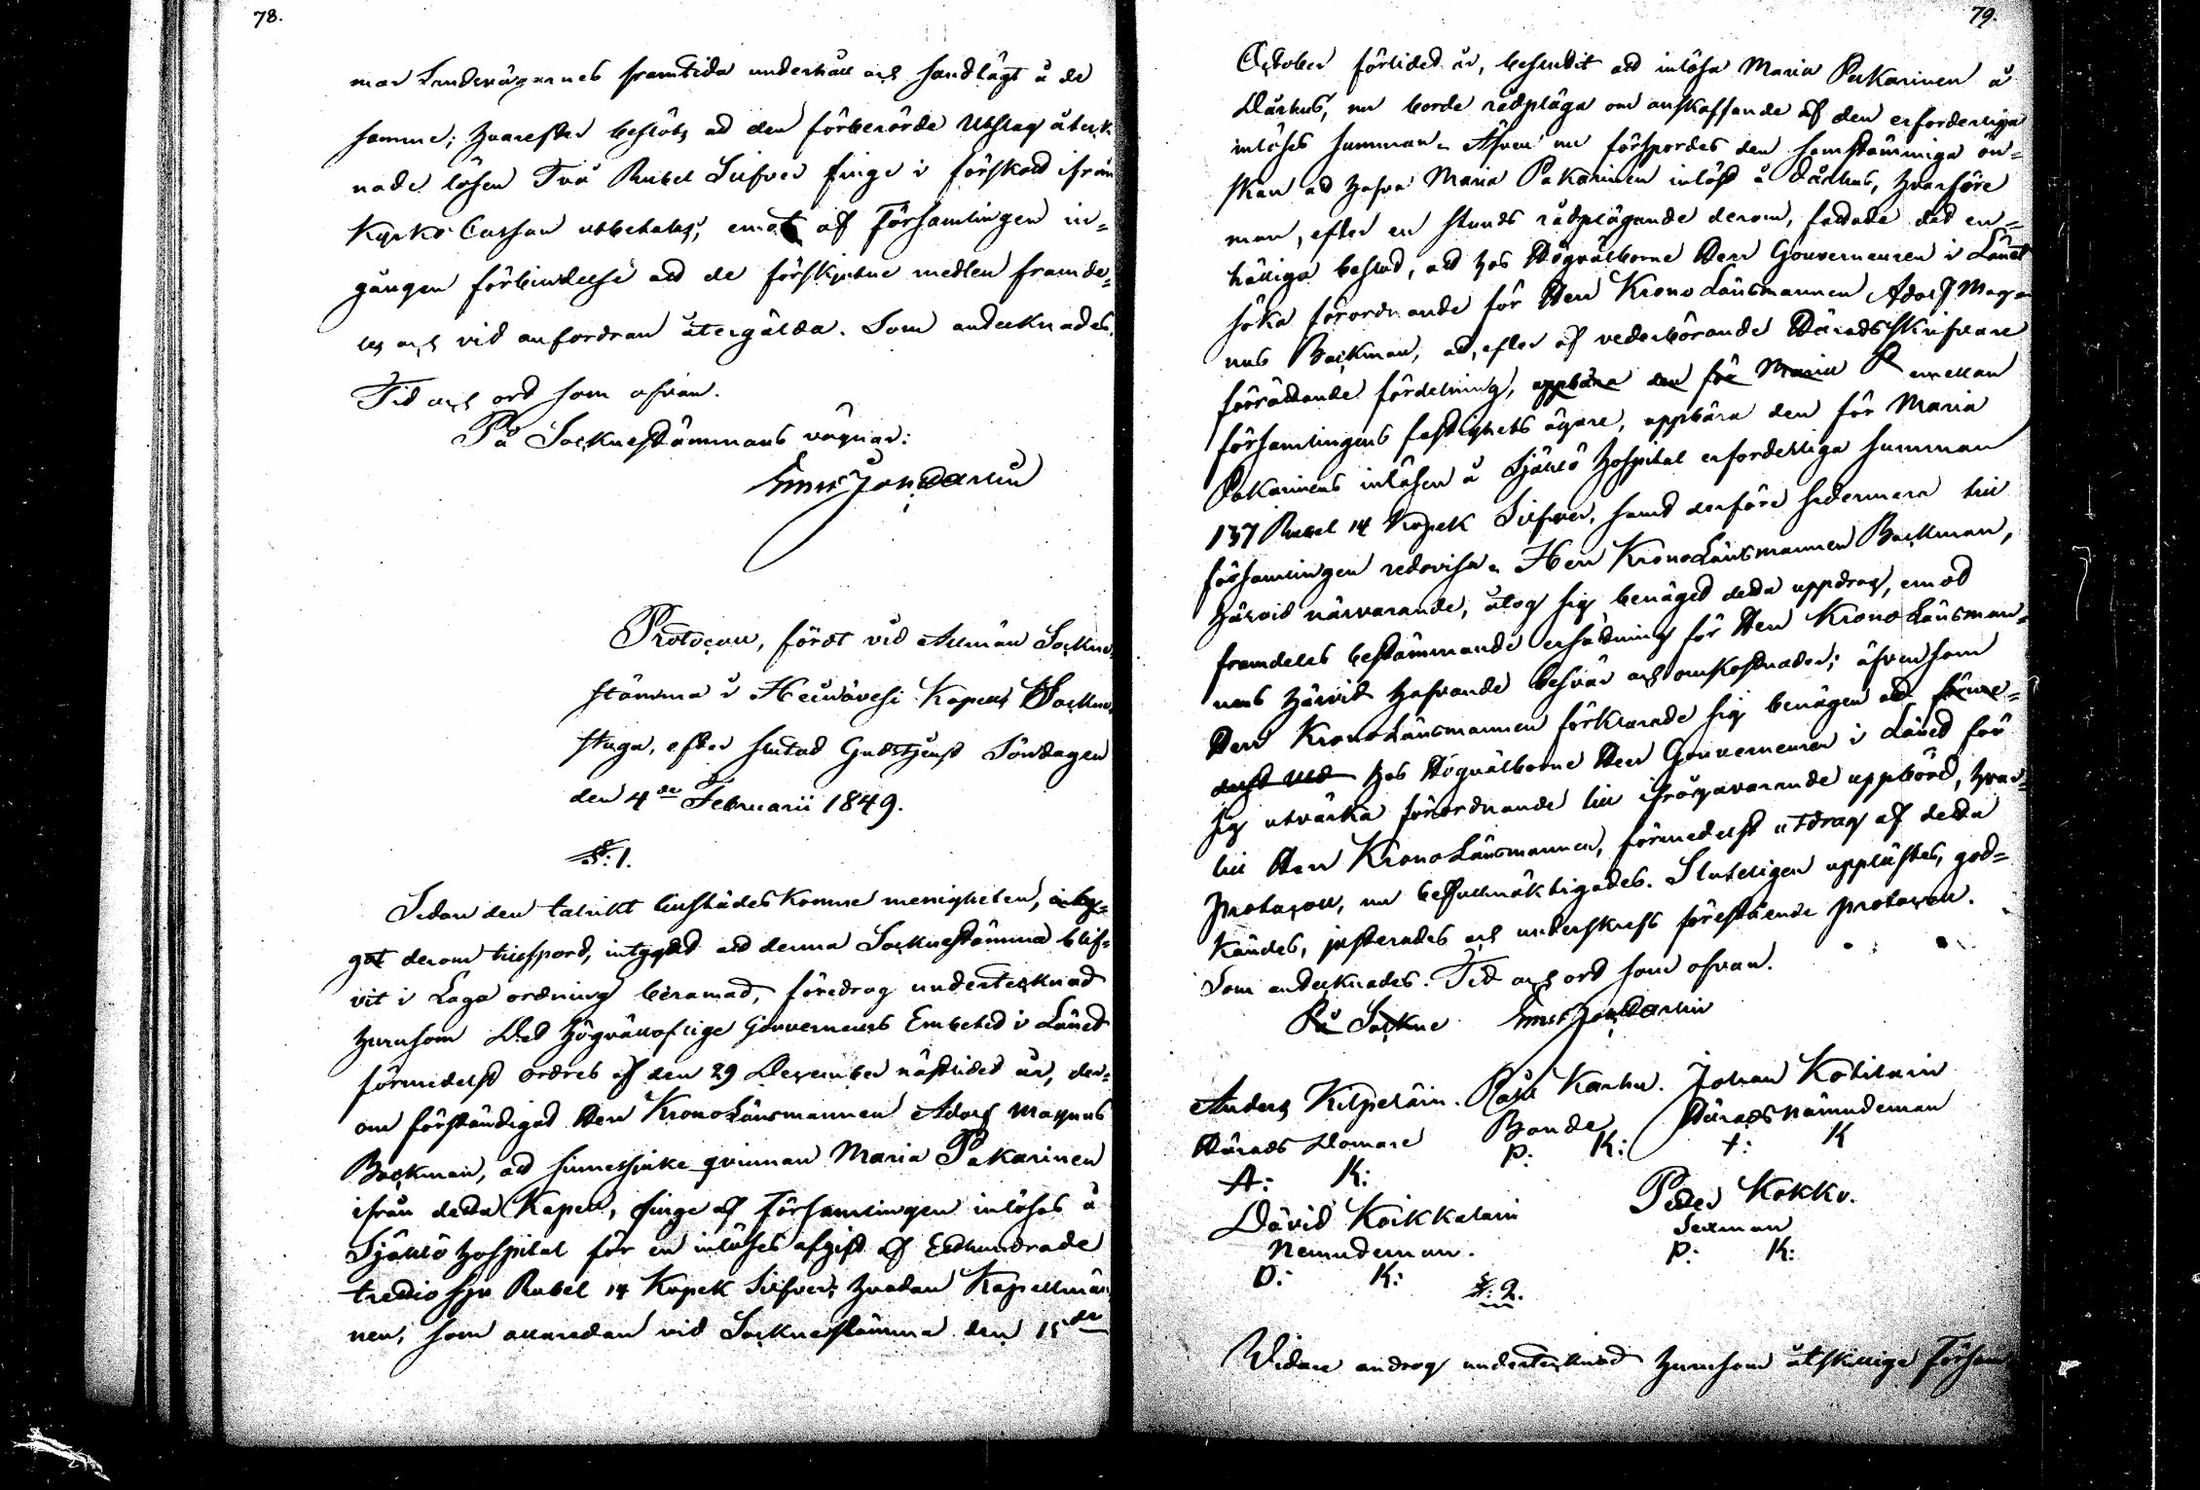 78.
mar Landsvägarnes framtida underhåll och handlagt å de
samme; hvarefter beslöts att den förberörde Utslag åteck
nade lösen Två Rubel Silfver finge i förskott ifrån
Kyrko Cassan utbetalas, emot af Församlingen in=
gången förbindelse att de förskjutne medlen framde=
les och vid anfordran återgälda. Som antecknades.
Tid och ort som ofvan.
På Socknestämmans vägnar:
Protocoll, fördt vid Allmän Sockne,
stämma i Heinävesi Kapells Sockne,
stuga, efter slutad Gudstjenst Söndagen
den 4de Februarii 1849.
§: 1.
Sedan den talrikt tillstädes komne menigheten,
derom tillspord, intygat att denna Socknestämma blif=
vit i Laga ordning beramad, föredrog undertecknad
hurusom Det Högvälloflige Gouverneurs Embetet i Länet
förmedelst ordres af den 29 December nästlidet år, der=
om förständigat Herr KronoLänsmannen Adolf Magnus
Backman, att sinnessjuke qvinnan Maria Pakarinen
ifrån detta Kapell, finge af Församlingen inlösas å
Sjählö Hospital för en inlösesafgift af Etthundrade
trettio sju Rubel 14 Kopek Silfver; hvadan Kapellmän
nen, som allaredan vid Socknestämma den 15de
79.
October förlidet år, beslutit att inlösa Maria Pakarinen å
Dårhus, nu borde rådpläga om anskaffande af den erforderliga
inlöses summan. Äfven nu förspordes den samstämmiga ön=
skan att hafva Maria Pakarinen inlöst å Dårhus, hvarföre
man, efter en stunds rådplägande derom, fattade det en=
hälliga beslut, att hos Högvälborne Herr Gouverneuren i Länet
söka förordnande för Herr Krono Länsmannen Adolf Mag
nus Backman, att, efter af vederbörande Häradsskrifvare
förrättande fördelning, uppbära den för Maria P emellan
församlingens fastighets ägare, uppbära den för Maria
Pakarinens inlösen å Sjählö Hospital erforderliga summan
137 Rubel 14 Kopek Silfver, samt derföre sedermera till
församlingen redovisa. Herr KronoLänsmannen Backman,
härvid närvarande, åtog sig benäget detta uppdrag, emot
framdeles bestämmande ersättning för Herr KronoLänsman=
nens härvid hafvande besvär och omkostnader; äfvensom
Herr KronoLänsmannen förklarade sig benägen att förme=
delst hos Högvälborne Herr Gouverneuren i Länet för
sig utvärka förordnande till ifrågavarande uppbörd, hvar=
till Herr KronoLänsmannen, förmedelst utdrag af detta
Protocoll, nu befullmäktigades. Slutligen upplästes, god=
kändes, justerades och underskrefs förestående Protocoll.
Som antecknades. Tid och ort som ofvan.
På Sockne
Anders Kilpeläin. Påhl Karhu. Johan Kotilain
Härads Domare Bonde Härads Nämndeman
A: K: P: K: †: K
David Koikkalain Peder Kokko.
Nemndeman. Sexman
D: K: P: K:
§: 2.
Vidare androg undertecknad hurusom åtskillige Försam